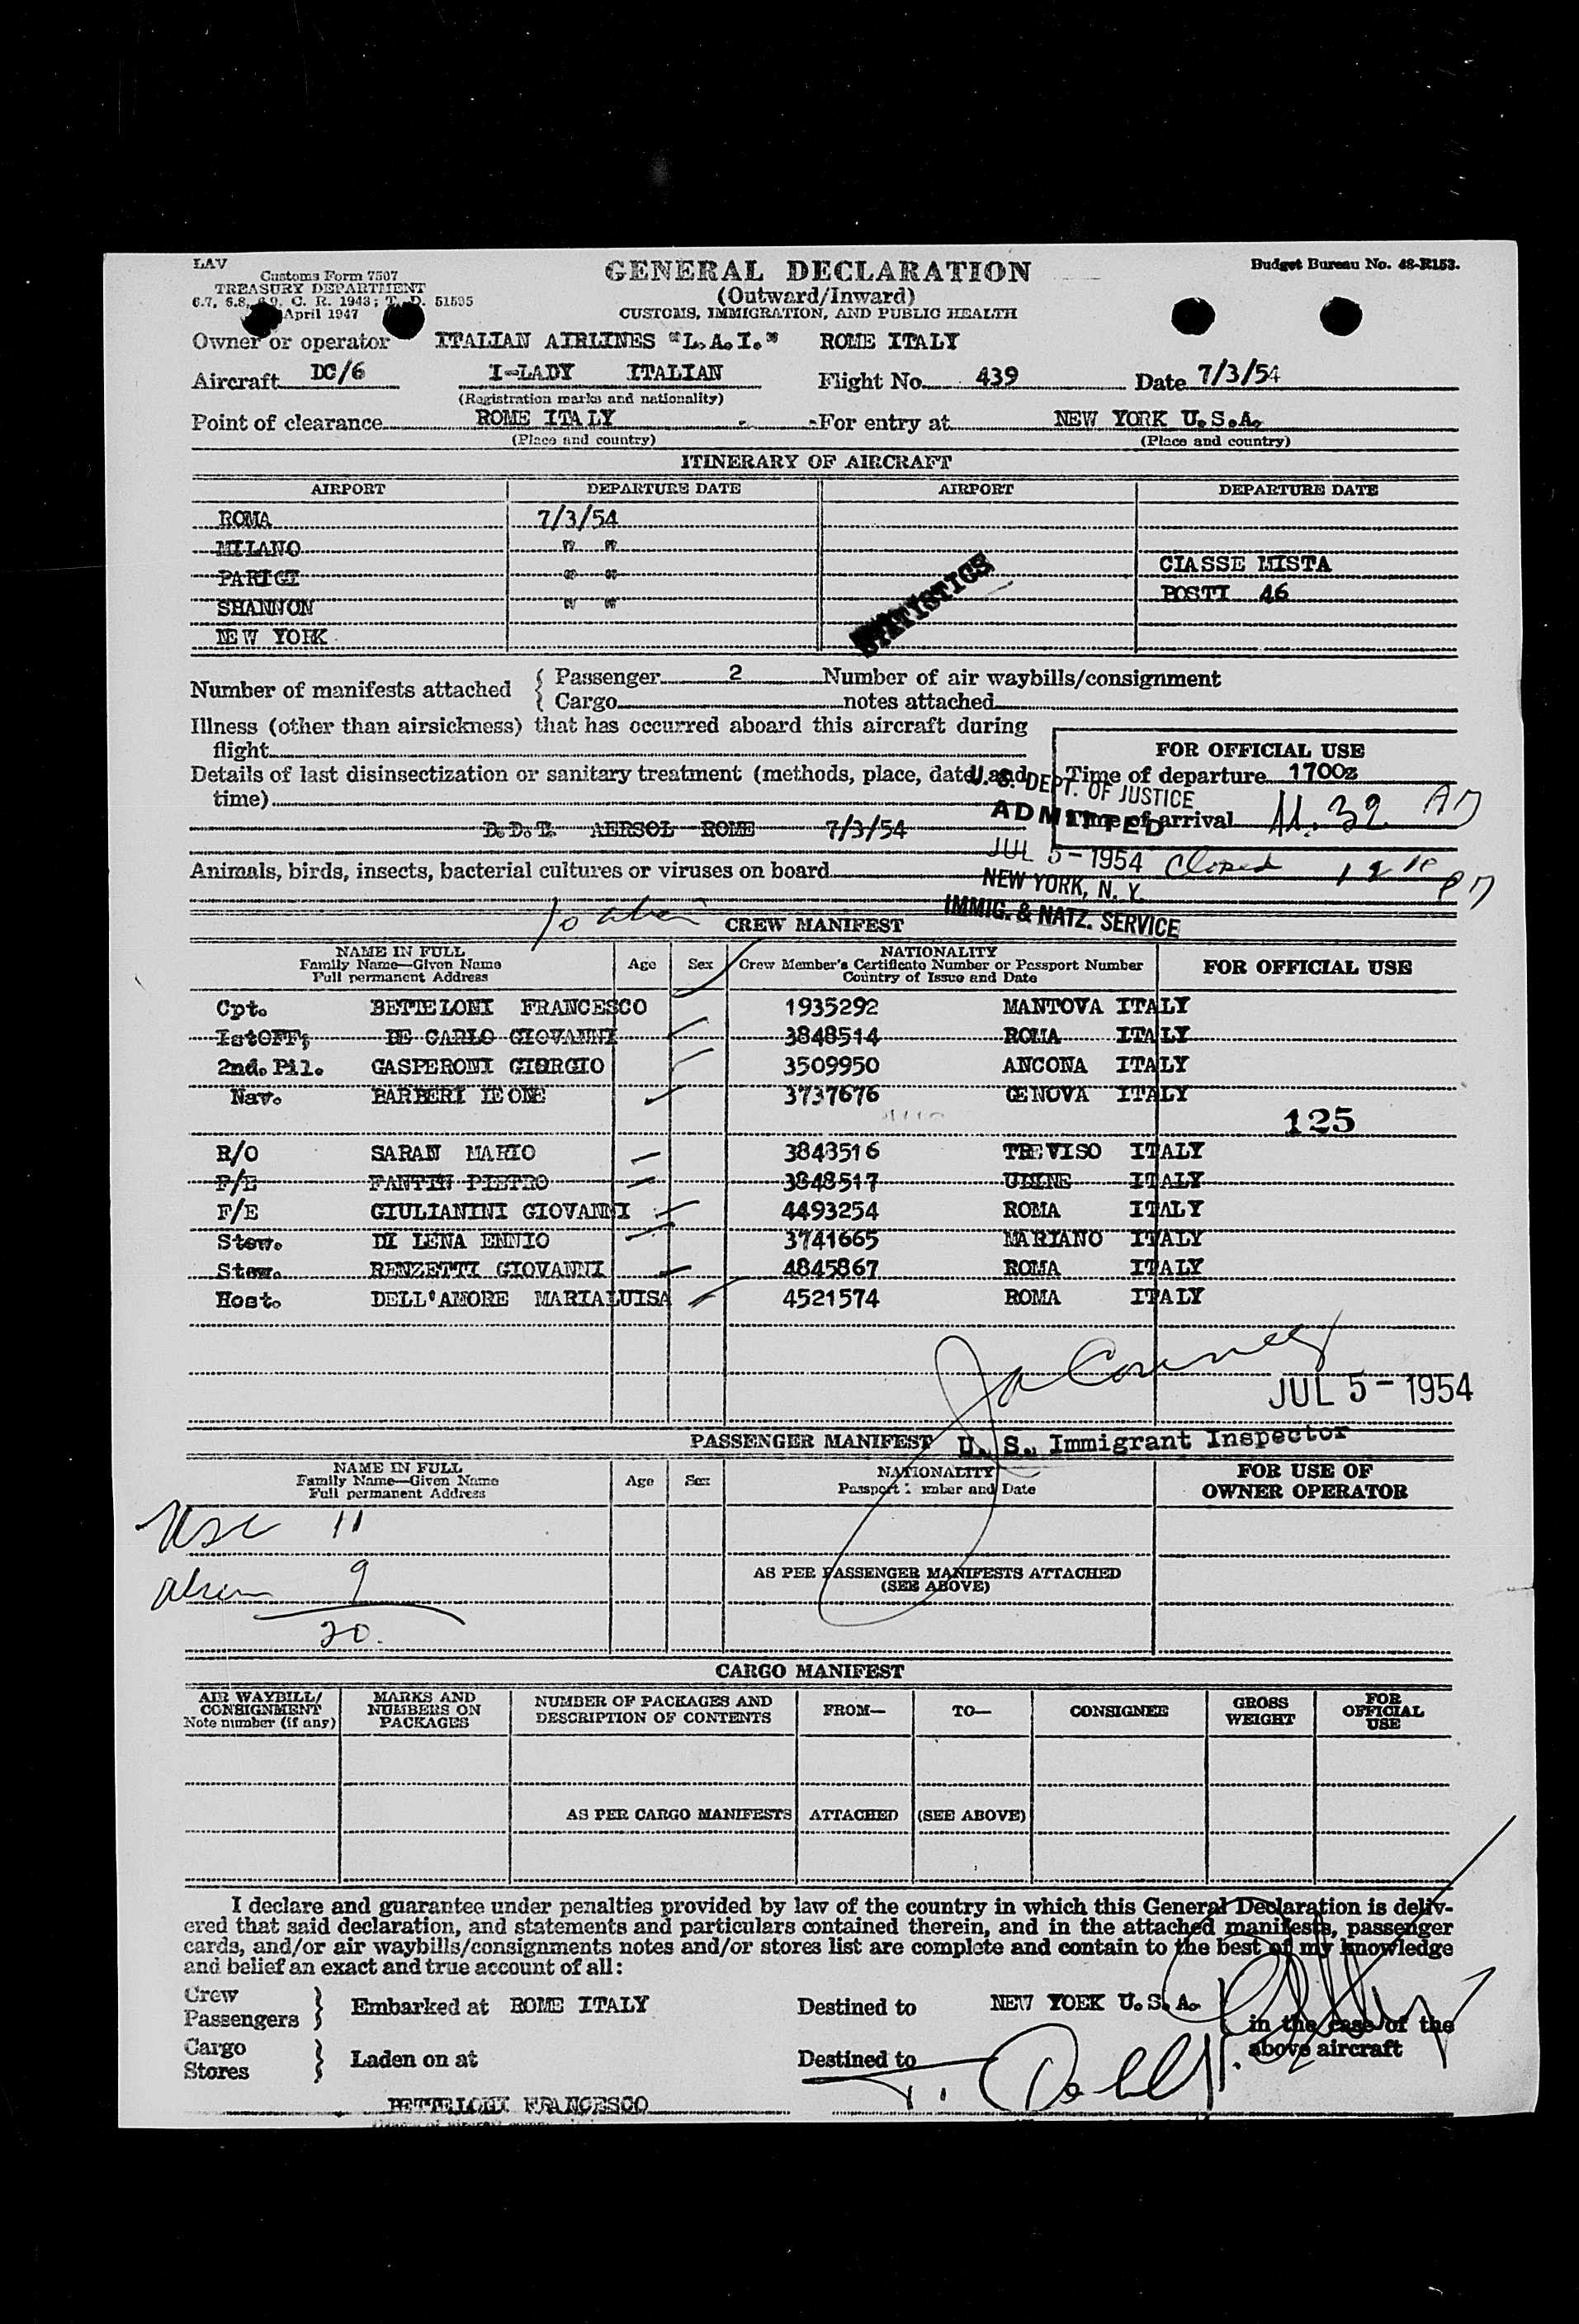 LAV
Customs Form 7507
TREASURY DEPARTMENT
6.7, 6.8, 6.9, C. R. 1943; T. D. 51595
April 1947
GENERAL DECLARATION
(Outward/Inward)
CUSTOMS, IMMIGRATION, AND PUBLIC HEALTH
Budget Bureau No. 48-R153.
Owner or operator ITALIAN AIRLINES "L.A.I." ROME ITALY
Aircraft DC/6 I-LADY ITALIAN Flight No. 439 Date 7/3/54
(Registration marks and nationality)
Point of clearance ROME ITALY For entry at NEW YORK U.S.A.
(Place and country) (Place and country)
ITINERARY OF AIRCRAFT
AIRPORT DEPARTURE DATE AIRPORT DEPARTURE DATE
ROMA 7/3/54
MILANO " "
PARIGI " " CLASSE MISTA
SHANNON " " POSTI 46
NEW YORK
STATISTICS
Number of manifests attached { Passenger 2 Number of air waybills/consignment
{ Cargo notes attached
Illness (other than airsickness) that has occurred aboard this aircraft during
flight
FOR OFFICIAL USE
Details of last disinsectization or sanitary treatment (methods, place, date, and
time)
Time of departure 1700z
Time of arrival 11.32 AM
D.D.T. AERSOL ROME 7/3/54
U. S. DEPT. OF JUSTICE
ADMITTED
JUL 5 - 1954
NEW YORK, N. Y.
IMMIG. & NATZ. SERVICE
Closed 12 10 PM
Animals, birds, insects, bacterial cultures or viruses on board
10 alien
CREW MANIFEST
NAME IN FULL
Family Name—Given Name
Full permanent Address
Age Sex
NATIONALITY
Crew Member's Certificate Number or Passport Number
Country of Issue and Date
FOR OFFICIAL USE
Cpt. BETTELONI FRANCESCO 1935292 MANTOVA ITALY
IstOFF; DE CARLO GIOVANNI 3848514 ROMA ITALY
2nd. Pil. GASPERONI GIORGIO 3509950 ANCONA ITALY
Nav. BARBERI LEONE 3737676 GENOVA ITALY
125
R/O SARAN MARIO 3843516 TREVISO ITALY
F/E FANTIN PIETRO 3848517 UDINE ITALY
F/E GIULIANINI GIOVANNI 4493254 ROMA ITALY
Stew. DI LENA ENNIO 3741665 MARIANO ITALY
Stew. RENZETTI GIOVANNI 4845867 ROMA ITALY
Host. DELL'AMORE MARIALUISA 4521574 ROMA ITALY
JUL 5 - 1954
PASSENGER MANIFEST U. S. Immigrant Inspector
NAME IN FULL
Family Name—Given Name
Full permanent Address
Age Sex
NATIONALITY
Passport Number and Date
FOR USE OF
OWNER OPERATOR
USC 11
alien 9
20.
AS PER PASSENGER MANIFESTS ATTACHED
(SEE ABOVE)
CARGO MANIFEST
AIR WAYBILL/
CONSIGNMENT
Note number (if any)
MARKS AND
NUMBERS ON
PACKAGES
NUMBER OF PACKAGES AND
DESCRIPTION OF CONTENTS
FROM— TO— CONSIGNEE
GROSS
WEIGHT
FOR
OFFICIAL
USE
AS PER CARGO MANIFESTS ATTACHED (SEE ABOVE)
I declare and guarantee under penalties provided by law of the country in which this General Declaration is deliv-
ered that said declaration, and statements and particulars contained therein, and in the attached manifests, passenger
cards, and/or air waybills/consignments notes and/or stores list are complete and contain to the best of my knowledge
and belief an exact and true account of all:
Crew
Passengers } Embarked at ROME ITALY Destined to NEW YORK U.S.A.
in the case of the
above aircraft
Cargo
Stores } Laden on at Destined to
BETTELONI FRANCESCO